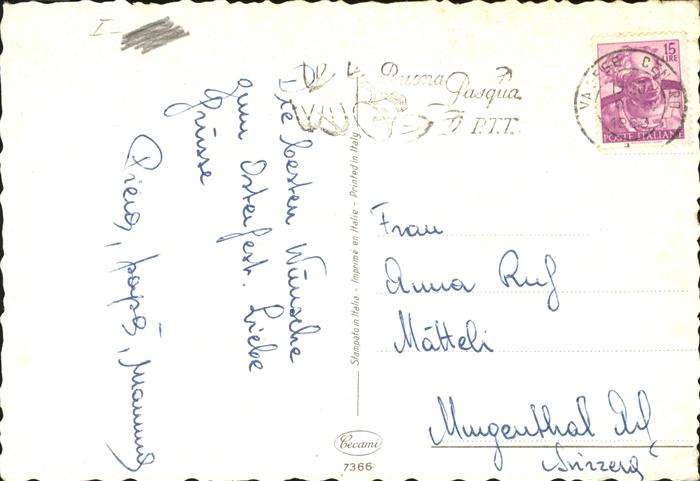 I-
Die besten Wünsche
zum Osterfest. Liebe
Grüsse
Piero, papà, Mamma
Buona
Pasqua
P.T.T.
15
LIRE
POSTE ITALIANE
Stampato in Italia - Imprimé en Italie - Printed in Italy
Frau
Anna Ruf
Mätteli
Murgenthal
Svizzera
Cecami
7366